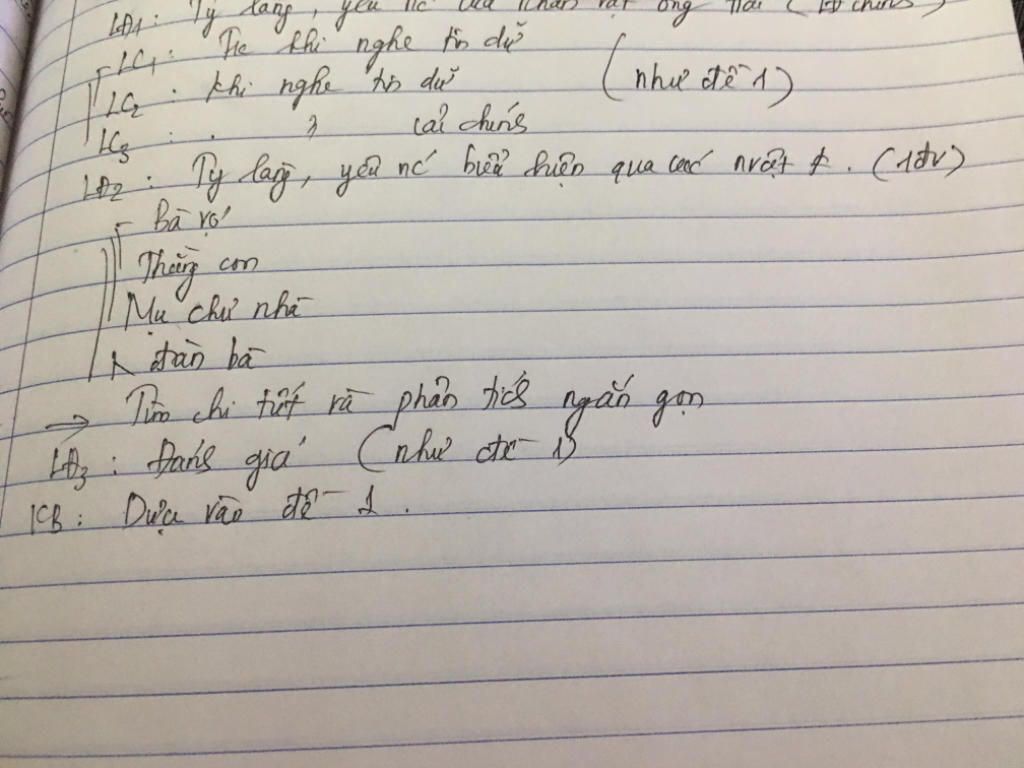 LĐ1: Ty làng, yêu nc của nhân vật ông Hai (LĐ chính)
LC1: Trc khi nghe tin dữ
LC2: khi nghe tin dữ (như đề 1)
LC3: . " cải chính
LĐ2: Ty làng, yêu nc biểu hiện qua các nvật ≠. (1đv)
Bà vợ
Thằng con
Mụ chủ nhà
đàn bà
→ Tìm chi tiết và phân tích ngắn gọn
LĐ3: Đánh giá (như đề 1)
KB: Dựa vào đề 1.